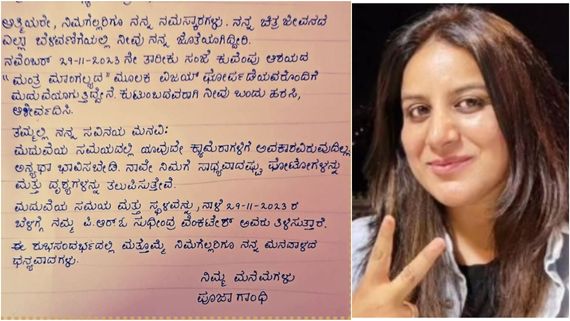 ಆತ್ಮೀಯರೇ, ನಿಮಗೆಲ್ಲರಿಗೂ ನನ್ನ ನಮಸ್ಕಾರಗಳು. ನನ್ನ ಚಿತ್ರ ಜೀವನದ
ಎಲ್ಲಾ ಬೆಳವಣಿಗೆಯಲ್ಲಿ ನೀವು ನನ್ನ ಜೊತೆಯಾಗಿದ್ದೀರಿ.
ನವೆಂಬರ್ 29-11-2023 ನೇ ತಾರೀಕು ಸಂಜೆ ಕುವೆಂಪು ಆಶಯದ
“ಮಂತ್ರ ಮಾಂಗಲ್ಯದ” ಮೂಲಕ ವಿಜಯ್ ಘೋರ್ಪಡೆಯವರೊಂದಿಗೆ
ಮದುವೆಯಾಗುತ್ತಿದ್ದೇನೆ. ಕುಟುಂಬದವರಾಗಿ ನೀವು ಬಂದು ಹರಸಿ,
ಆಶೀರ್ವದಿಸಿ.
ತಮ್ಮಲ್ಲಿ ನನ್ನ ಸವಿನಯ ಮನವಿ:
ಮದುವೆಯ ಸಮಯದಲ್ಲಿ ಯಾವುದೇ ಕ್ಯಾಮೆರಾಗಳಿಗೆ ಅವಕಾಶವಿರುವುದಿಲ್ಲ.
ಅನ್ಯಥಾ ಭಾವಿಸಬೇಡಿ. ನಾವೇ ನಿಮಗೆ ಸಾಧ್ಯವಾದಷ್ಟು ಫೋಟೋಗಳನ್ನು
ಮತ್ತು ದೃಶ್ಯಗಳನ್ನು ತಲುಪಿಸುತ್ತೇವೆ.
ಮದುವೆಯ ಸಮಯ ಮತ್ತು ಸ್ಥಳವನ್ನು ನಾಳೆ 29-11-2023 ರ
ಬೆಳಗ್ಗೆ ನಮ್ಮ ಪಿ.ಆರ್.ಓ ಸುಧೀಂದ್ರ ವೆಂಕಟೇಶ್ ಅವರು ತಿಳಿಸುತ್ತಾರೆ.
ಈ ಶುಭಸಂದರ್ಭದಲ್ಲಿ ಮತ್ತೊಮ್ಮೆ ನಿಮಗೆಲ್ಲರಿಗೂ ನನ್ನ ಮನದಾಳದ
ಧನ್ಯವಾದಗಳು.
ನಿಮ್ಮ ಮನೆಮಗಳು
ಪೂಜಾ ಗಾಂಧಿ